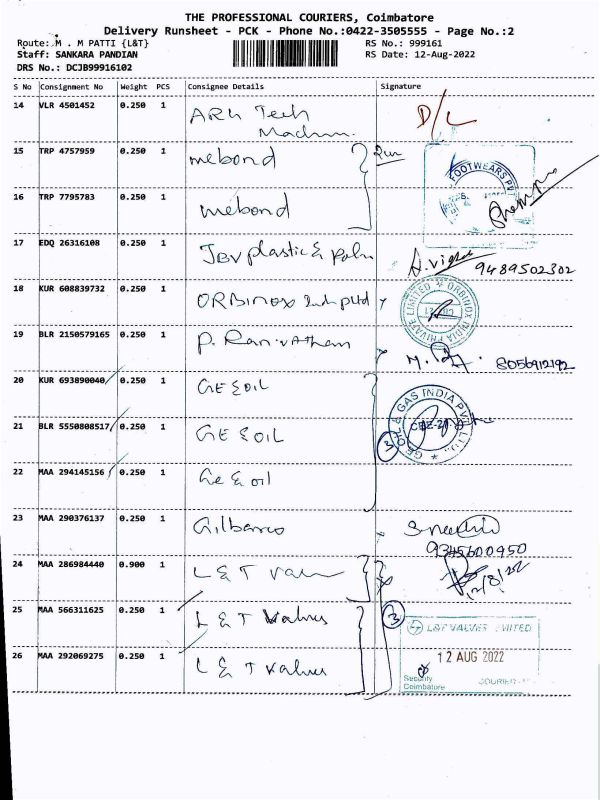 THE PROFESSIONAL COURIERS, Coimbatore
Delivery Runsheet - PCK - Phone No.:0422-3505555 - Page No.:2
Route: M . M PATTI {L&T} RS No.: 999161
Staff: SANKARA PANDIAN RS Date: 12-Aug-2022
DRS No.: DCJB99916102
S No Consignment No Weight PCS Consignee Details Signature
14 VLR 4501452 0.250 1 Tech D/L
15 TRP 4757959 0.250 1 mebond
FOOTWEARS PVT
16 TRP 7795783 0.250 1 mebond
17 EDQ 26316108 0.250 1 plastic & 9489502302
18 KUR 608839732 0.250 1 ORBINOX Ind pltd
ORBINOX INDIA PRIVATE LIMITED
19 BLR 2150579165 0.250 1 P. 8056912192
20 KUR 693890040 0.250 1 GE & OIL
GE OIL & GAS INDIA PVT. LTD.
21 BLR 5550808517 0.250 1 GE & OIL 3
22 MAA 294145156 0.250 1 Ge & oil
23 MAA 290376137 0.250 1 Gilbarco
9345600950
24 MAA 286984440 0.900 1 L & T 12/8/22
25 MAA 566311625 0.250 1 L & T Valves 3
L&T VALVES LIMITED
12 AUG 2022
26 MAA 292069275 0.250 1 L & T Valves
Security
Coimbatore